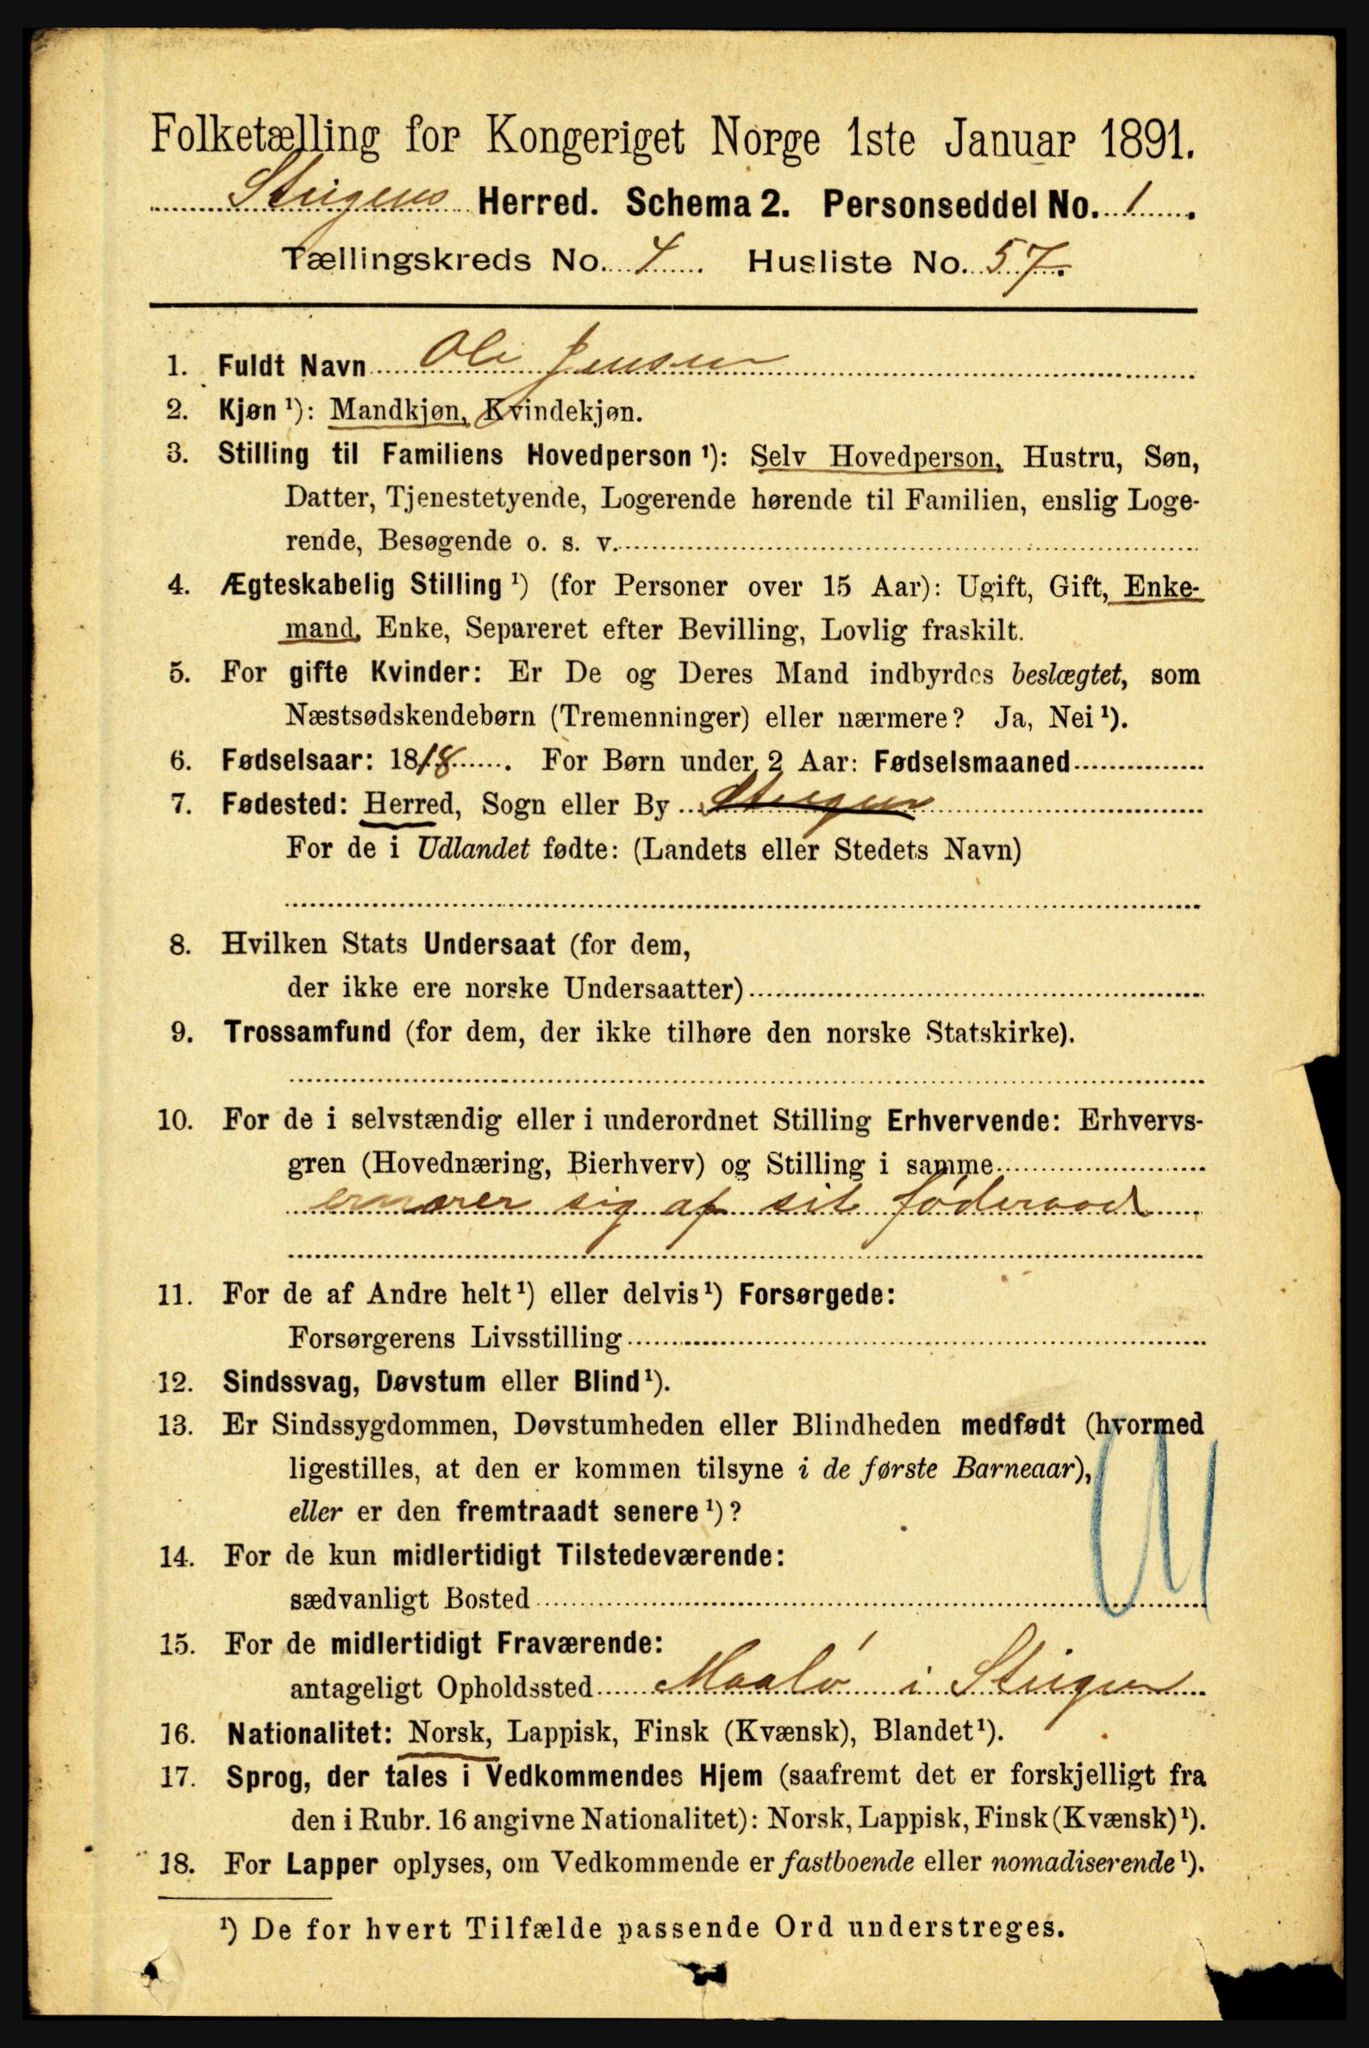 Folketælling for Kongeriget Norge 1ste Januar 1891.
Steigens Herred. Schema 2. Personseddel No. 1.
Tællingskreds No. 4. Husliste No. 57.
1. Fuldt Navn Ole Jensen
2. Kjøn ¹): Mandkjøn, Kvindekjøn.
3. Stilling til Familiens Hovedperson ¹): Selv Hovedperson, Hustru, Søn,
Datter, Tjenestetyende, Logerende hørende til Familien, enslig Loge-
rende, Besøgende o. s. v.
4. Ægteskabelig Stilling ¹) (for Personer over 15 Aar): Ugift, Gift, Enke-
mand, Enke, Separeret efter Bevilling, Lovlig fraskilt.
5. For gifte Kvinder: Er De og Deres Mand indbyrdes beslægtet, som
Næstsødskendebørn (Tremenninger) eller nærmere? Ja, Nei ¹).
6. Fødselsaar: 1818. For Børn under 2 Aar: Fødselsmaaned
7. Fødested: Herred, Sogn eller By Steigen
For de i Udlandet fødte: (Landets eller Stedets Navn)
8. Hvilken Stats Undersaat (for dem,
der ikke ere norske Undersaatter)
9. Trossamfund (for dem, der ikke tilhøre den norske Statskirke).
10. For de i selvstændig eller i underordnet Stilling Erhvervende: Erhvervs-
gren (Hovednæring, Bierhverv) og Stilling i samme
ernærer sig af sit föderaad
11. For de af Andre helt ¹) eller delvis ¹) Forsørgede:
Forsørgerens Livsstilling
12. Sindssvag, Døvstum eller Blind ¹).
13. Er Sindssygdommen, Døvstumheden eller Blindheden medfødt (hvormed
ligestilles, at den er kommen tilsyne i de første Barneaar),
eller er den fremtraadt senere ¹)?
14. For de kun midlertidigt Tilstedeværende:
sædvanligt Bosted
15. For de midlertidigt Fraværende:
antageligt Opholdssted Maalö i Steigen
16. Nationalitet: Norsk, Lappisk, Finsk (Kvænsk), Blandet ¹).
17. Sprog, der tales i Vedkommendes Hjem (saafremt det er forskjelligt fra
den i Rubr. 16 angivne Nationalitet): Norsk, Lappisk, Finsk (Kvænsk) ¹).
18. For Lapper oplyses, om Vedkommende er fastboende eller nomadiserende ¹).
¹) De for hvert Tilfælde passende Ord understreges.